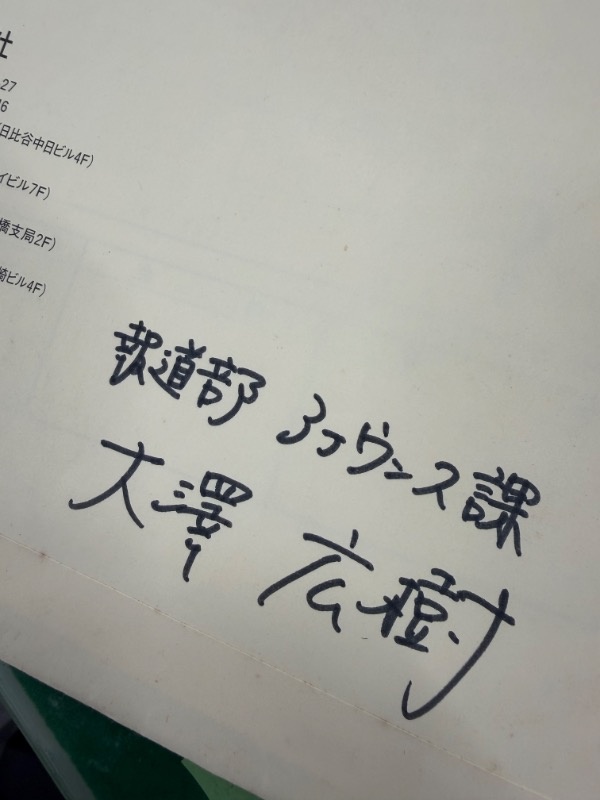 社
27
6
日比谷中日ビル4F)
イビル7F)
橋支局2F)
崎ビル4F)
報道部 アナウンス課
大澤 広樹